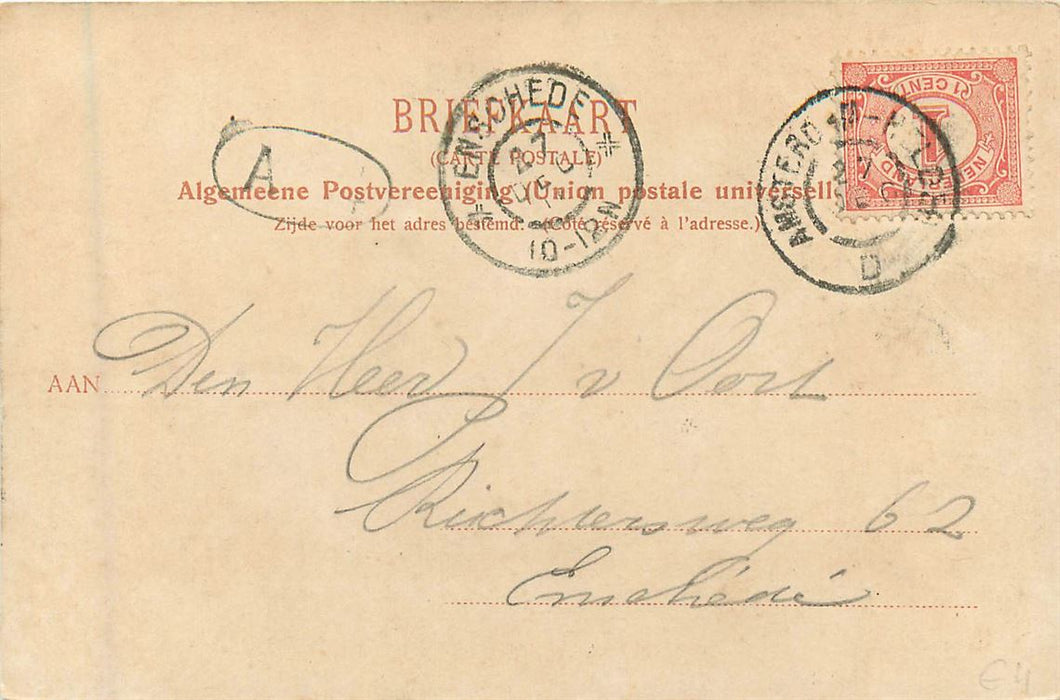 BRIEFKAART
(CARTE POSTALE)
Algemeene Postvereeniging (Union postale universelle)
Zijde voor het adres bestemd. (Côté réservé à l'adresse.)
A
ENSCHEDE
10-12N
AMSTERD
D
1 CENT
NEDERLAND
AAN Den Heer J v Oort
Richtersweg 62
Enschédé
€4